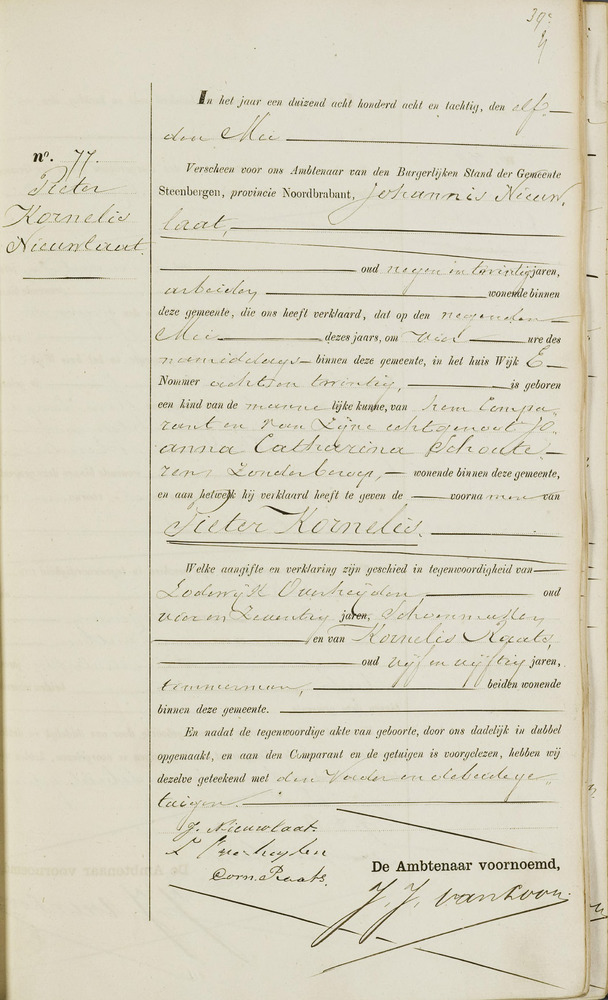 39.
nº. 77.
Pieter
Kornelis
Nieuwlaat.
In het jaar een duizend acht honderd acht en tachtig, den elf
den Mei
Verscheen voor ons Ambtenaar van den Burgerlijken Stand der Gemeente
Steenbergen, provincie Noordbrabant, Johannis Nieuw,
laat,
oud negen en twintig jaren,
arbeider wonende binnen
deze gemeente, die ons heeft verklaard, dat op den negenden
Mei dezes jaars, om vier ure des
namiddags binnen deze gemeente, in het huis Wijk E
Nommer achtien twintig, is geboren
een kind van de manne lijke kunne, van hem Compa"
rant en van zijne echtgenoot Jo"
anna Catharina Schoute"
rens zonder beroep, wonende binnen deze gemeente,
en aan hetwelk hij verklaard heeft te geven de voorna men van
Pieter Kornelis.
Welke aangifte en verklaring zijn geschied in tegenwoordigheid van
Lodewijk Overheijden, oud
vier en zeventig jaren, Schoenmaker
en van Kornelis Raats,
oud vijf en vijftig jaren,
timmerman, beiden wonende
binnen deze gemeente.
En nadat de tegenwoordige akte van geboorte, door ons dadelijk in dubbel
opgemaakt, en aan den Comparant en de getuigen is voorgelezen, hebben wij
dezelve geteekend met den Vader en de beide ge"
tuigen.
J. Nieuwlaat.
L Overheyden
Corn. Raats.
De Ambtenaar voornoemd,
J. J. van Loon.